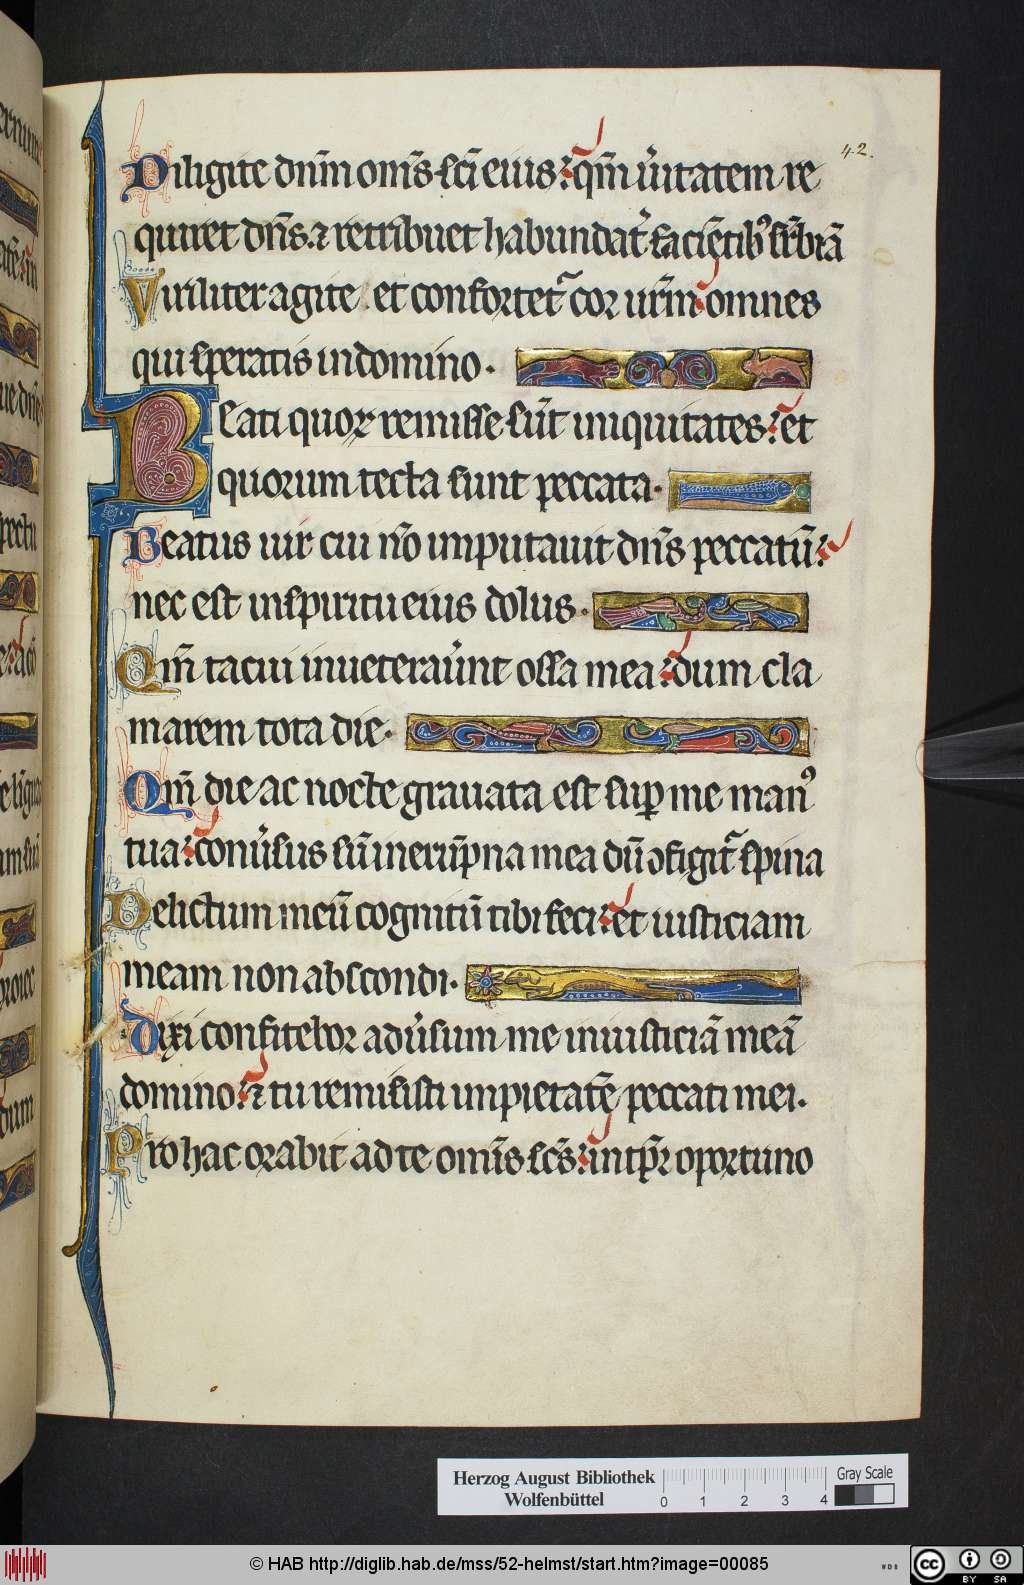 42.
Diligite dn̄m om̄s sc̄i eius: qm̄ u̾itatem re
quiret dn̄s. ⁊ retribuet habundat̾ faciētibꝰ suꝑbiā
Viriliter agite et confortet᷑ cor ur̄m: omnes
qui speratis in domino.
Beati quoꝝ remisse sūt iniquitates: et
quorum tecta sunt peccata.
Beatus uir cui nō imputauit dn̄s peccatū:
nec est in spiritu eius dolus.
Qm̄ tacui inueterau̾unt ossa mea: dum cla
marem tota die.
Qm̄ die ac nocte grauata est suꝑ me manꝰ
tua: conu̾sus sū in erūpna mea dū ꝯfigit᷑ spina
Delictum meū cognitū tibi feci: et iusticiam
meam non abscondi.
Dixi confitebor adu̾sum me iniusticiā meā
domino: ⁊ tu remisisti impietatē peccati mei.
Pro hac orabit ad te om̄is sc̄s: in tp̄r oportuno
Herzog August Bibliothek
Wolfenbüttel
0 1 2 3 4
Gray Scale
© HAB http://diglib.hab.de/mss/52-helmst/start.htm?image=00085
cc BY SA